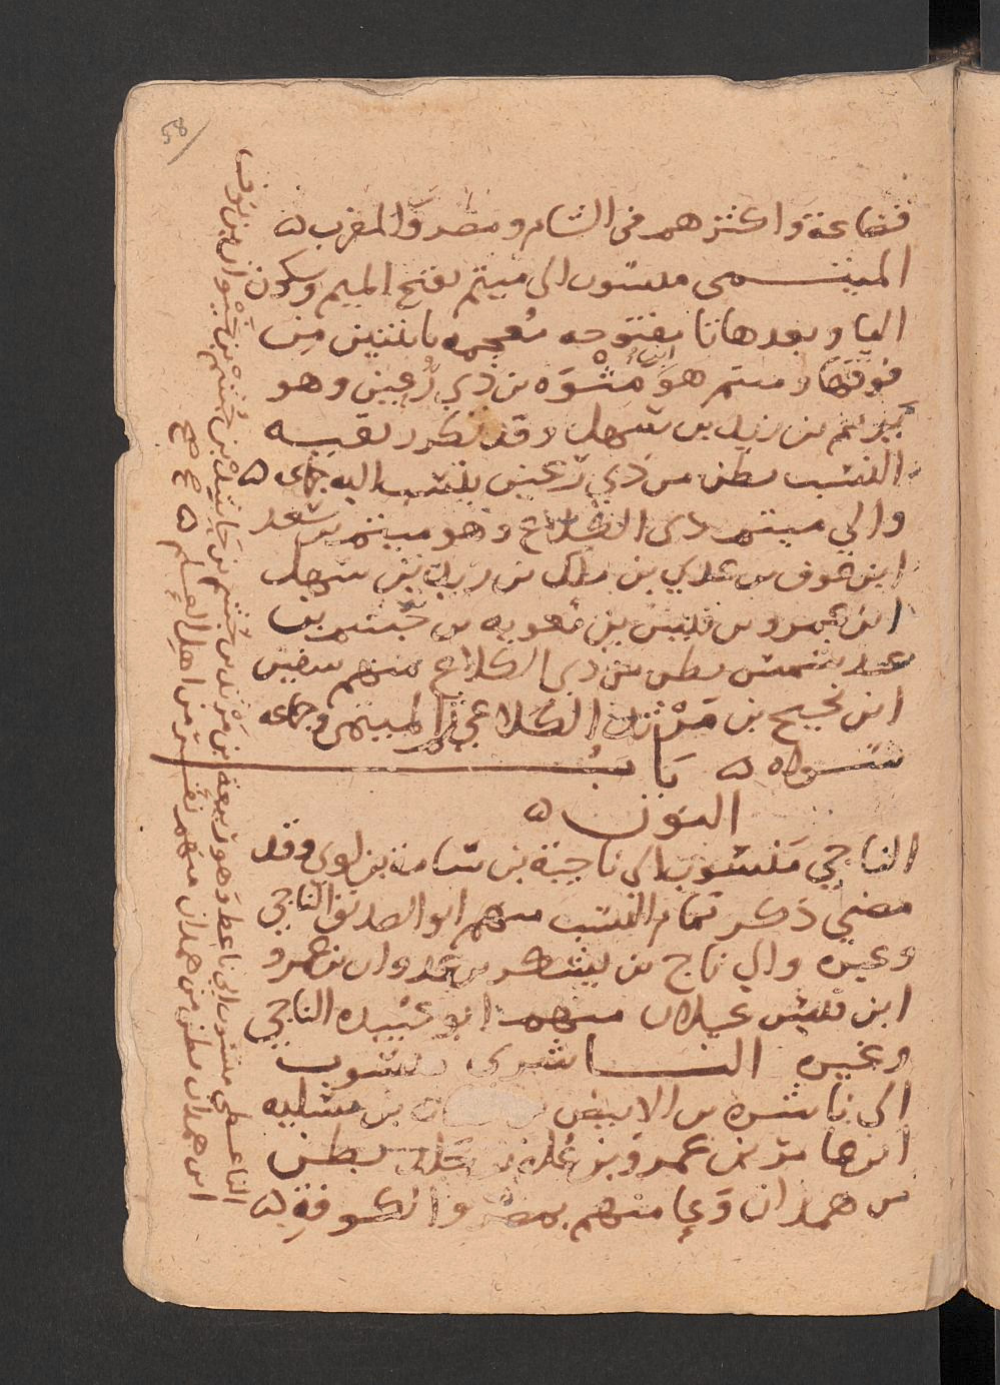 قضاعة واكثرهم فى الشام ومصر والمغرب ه
الميتـــمى منسوب الى ميتم بفتح الميم وسكون
اليا وبعدها تا مفتوحه معجمه باثنتين من
فوقها وميتم هو ابن مثوه بن ذي رعين وهو
يريم بن زيد بن سهل وقد تكرر بقيه
النسب بطن من ذي رعين ينسب اليه جماعه ه
والي ميتم ذى الكلاع وهو ميتم بن سعد
ابن عوف بن عدي بن ملك بن زيد بن سهل
ابن عمرو بن قيس بن معويه بن جشم بن
عبد شمس بطن من ذى الكلاع منهم سفين
ابن نجيح بن مرثد الكلاعي ثم الميتمى وجماعه
ســواه ه بابُ
النون ه
الناجي منسوب الى ناجية بن سامة بن لوي وقد
مضي ذكر تمام النسب منهم ابو الصديق الناجي
وغيره والي ناج بن يشكر بن عدوان بن عمرو
ابن قيس عيلان منهم ابو عبيده الناجي
وغيره النــــاشرى منسوب
الى ناشره بن الابيض بن بن مسليه
ابن عامر بن عمرو بن عله بن جلد بطن
من همدان وعا منهم بمصر والكوفة ه
الناعـطي منسوب الى ناعط وهو ربيعة بن مرثد بن جشم بن حاشد بن جشم بن خيوان بن نوف
ابن همدان بطن من همدان منهم نفر من اهل العلم ه صح صح
58